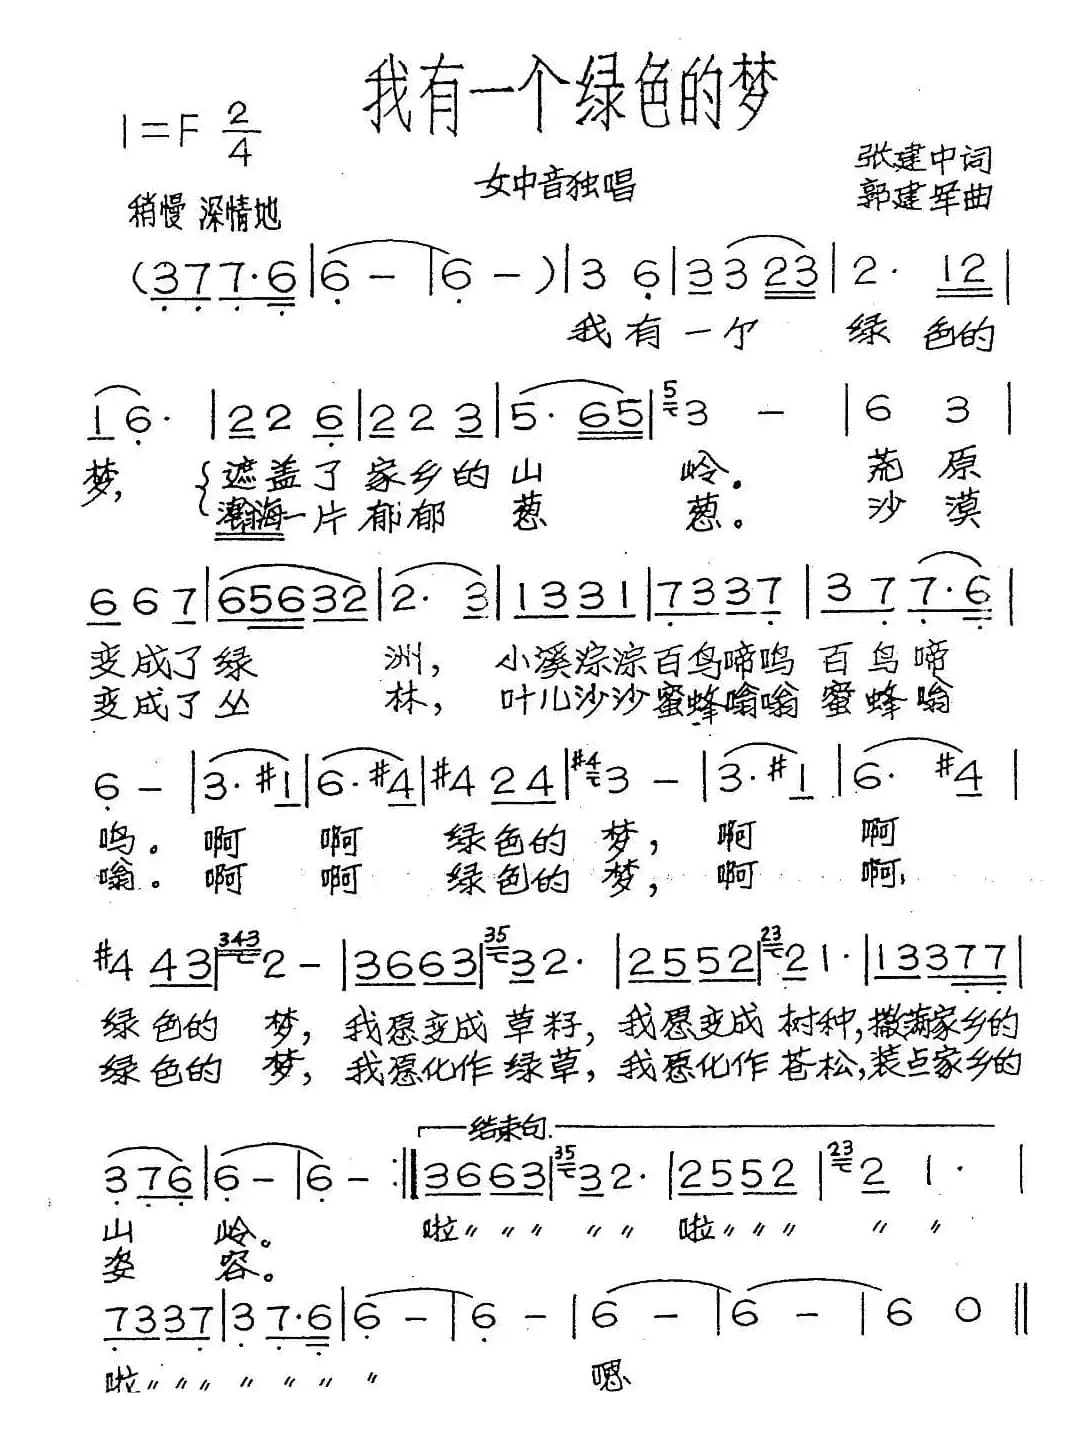 我有一个绿色的梦
1=F 2/4
女中音独唱
张建中词
郭建军曲
稍慢 深情地
(3 7 7·6 | 6 – | 6 – ) | 3 6 | 3 3 2 3 | 2· 1 2 |
我有一个 绿 色的
1 6· | 2 2 6 | 2 2 3 | 5· 6 5 | 5 3 – | 6 3 |
梦, { 遮盖了家乡的山 岭。 荒原
瀚海一片郁郁葱 葱。 沙漠
6 6 7 | 6 5 6 3 2 | 2· 3 | 1 3 3 1 | 7 3 3 7 | 3 7 7·6 |
变成了绿 洲, 小溪淙淙百鸟啼鸣 百鸟啼
变成了丛 林, 叶儿沙沙蜜蜂嗡嗡 蜜蜂嗡
6 – | 3· #1 | 6· #4 | #4 2 4 | #4 3 – | 3· #1 | 6· #4 |
鸣。啊 啊 绿色的 梦, 啊 啊
嗡。啊 啊 绿色的 梦, 啊 啊,
#4 4 3 | 343 2 – | 3 6 6 3 | 35 3 2· | 2 5 5 2 | 23 2 1· | 1 3 3 7 7 |
绿色的 梦, 我愿变成草籽, 我愿变成树种, 撒满家乡的
绿色的 梦, 我愿化作绿草, 我愿化作苍松, 装点家乡的
结束句.
3 7 6 | 6 – | 6 – :‖ 3 6 6 3 | 35 3 2· | 2 5 5 2 | 23 2 1· |
山 岭。 啦〃〃〃 〃〃 啦〃〃〃 〃 〃
姿 容。
7 3 3 7 | 3 7·6 | 6 – | 6 – | 6 – | 6 – | 6 0 ‖
啦〃〃〃 〃 〃 〃 〃 嗯